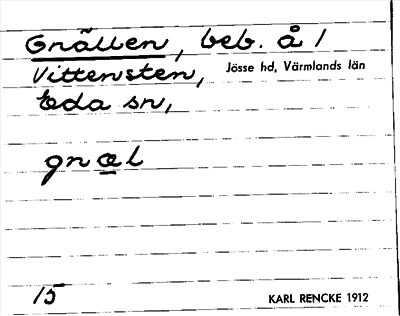 Gnällen, beb. å 1
Vittensten, Jösse hd, Värmlands län
Eda sn,
gnæl
15 KARL RENCKE 1912